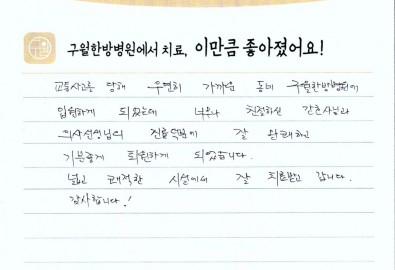 구월한방병원에서 치료, 이만큼 좋아졌어요!
교통사고를 당해 우연히 가까운 동네 구월한방병원에
입원하게 되었는데 너무나 친절하신 간호사님과
의사선생님의 진료덕분에 잘 완쾌하고
기분좋게 퇴원하게 되었습니다.
넓고 쾌적한 시설에서 잘 치료받고 갑니다.
감사합니다.!